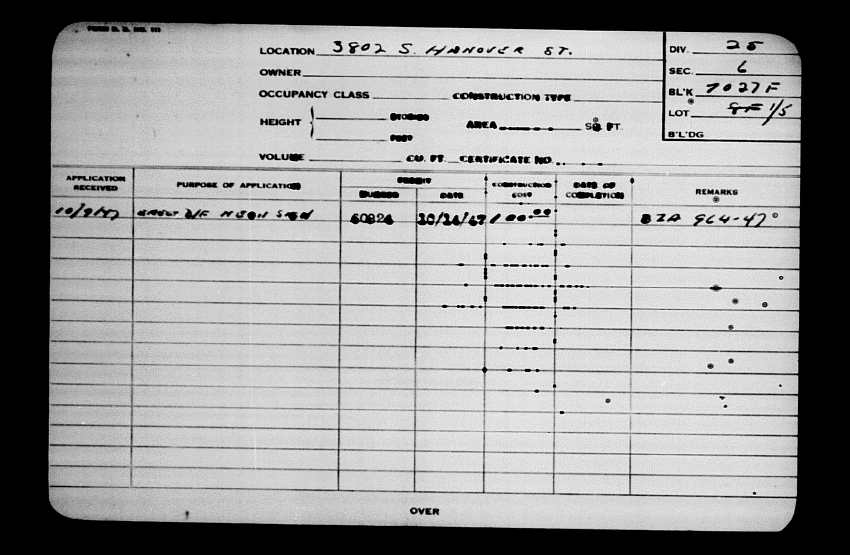 LOCATION 3802 S. HANOVER ST.
DIV. 25
OWNER
SEC. 6
OCCUPANCY CLASS CONSTRUCTION TYPE
BL'K 7027F
HEIGHT STORIES AREA SQ. FT.
LOT 8F 1/5
FEET
B'L'DG
VOLUME CU. FT. CERTIFICATE NO.
APPLICATION RECEIVED PURPOSE OF APPLICATION PERMIT NUMBER DATE CONSTRUCTION COST DATE OF COMPLETION REMARKS
10/9/47 ERECT D/F NEON SIGN 60824 100.00 BZA 964-47
OVER